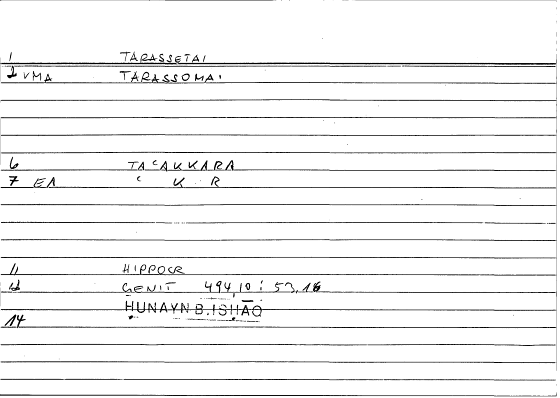 1 TARASSETAI
2 VMA TARASSOMAI
6 TAʿAKKARA
7 EA ʿ K R
11 HIPPOCR
12 GENIT 494,10 : 53,16
ḤUNAYN B. ISḤĀQ
14